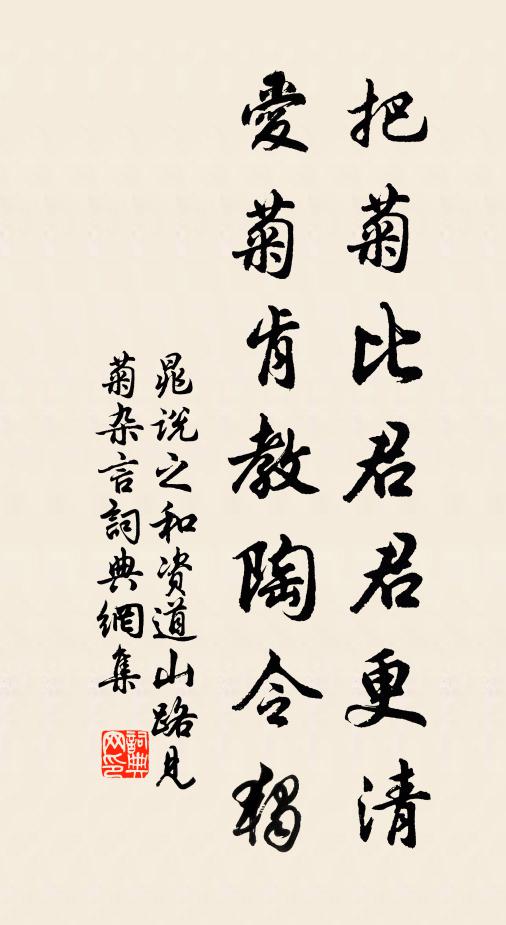 把菊比君君更清
愛菊肯教陶令獨
晁說之和資道山路見
菊杂言詞典網集
詞典網印